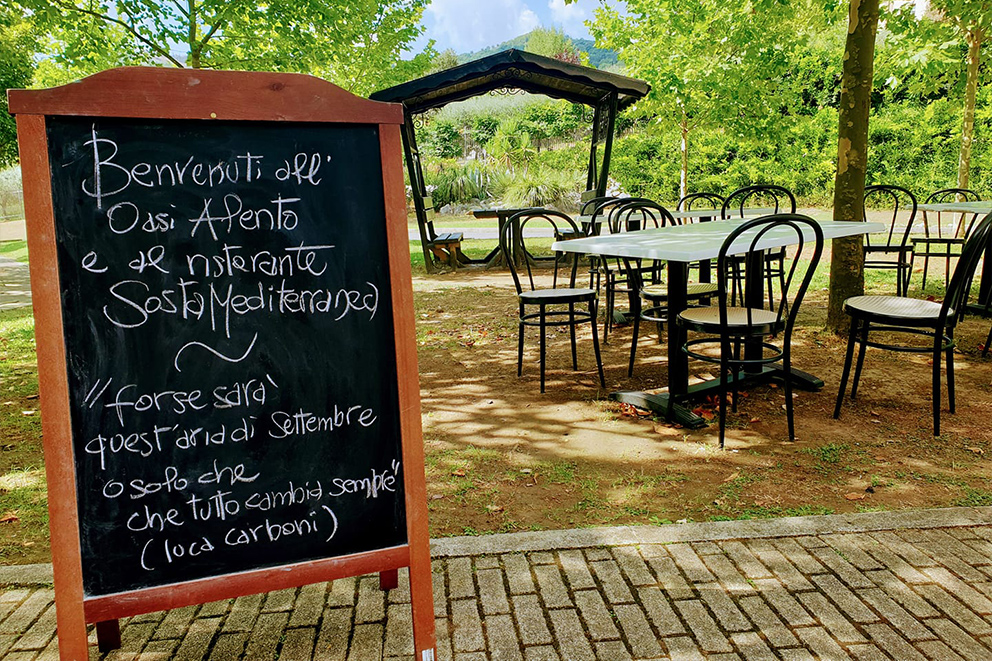 Benvenuti all'
Oasi Alento
e al ristorante
Sosta Mediterranea
~
"forse sarà
quest'aria di Settembre
o solo che
che tutto cambia sempre"
(luca carboni)